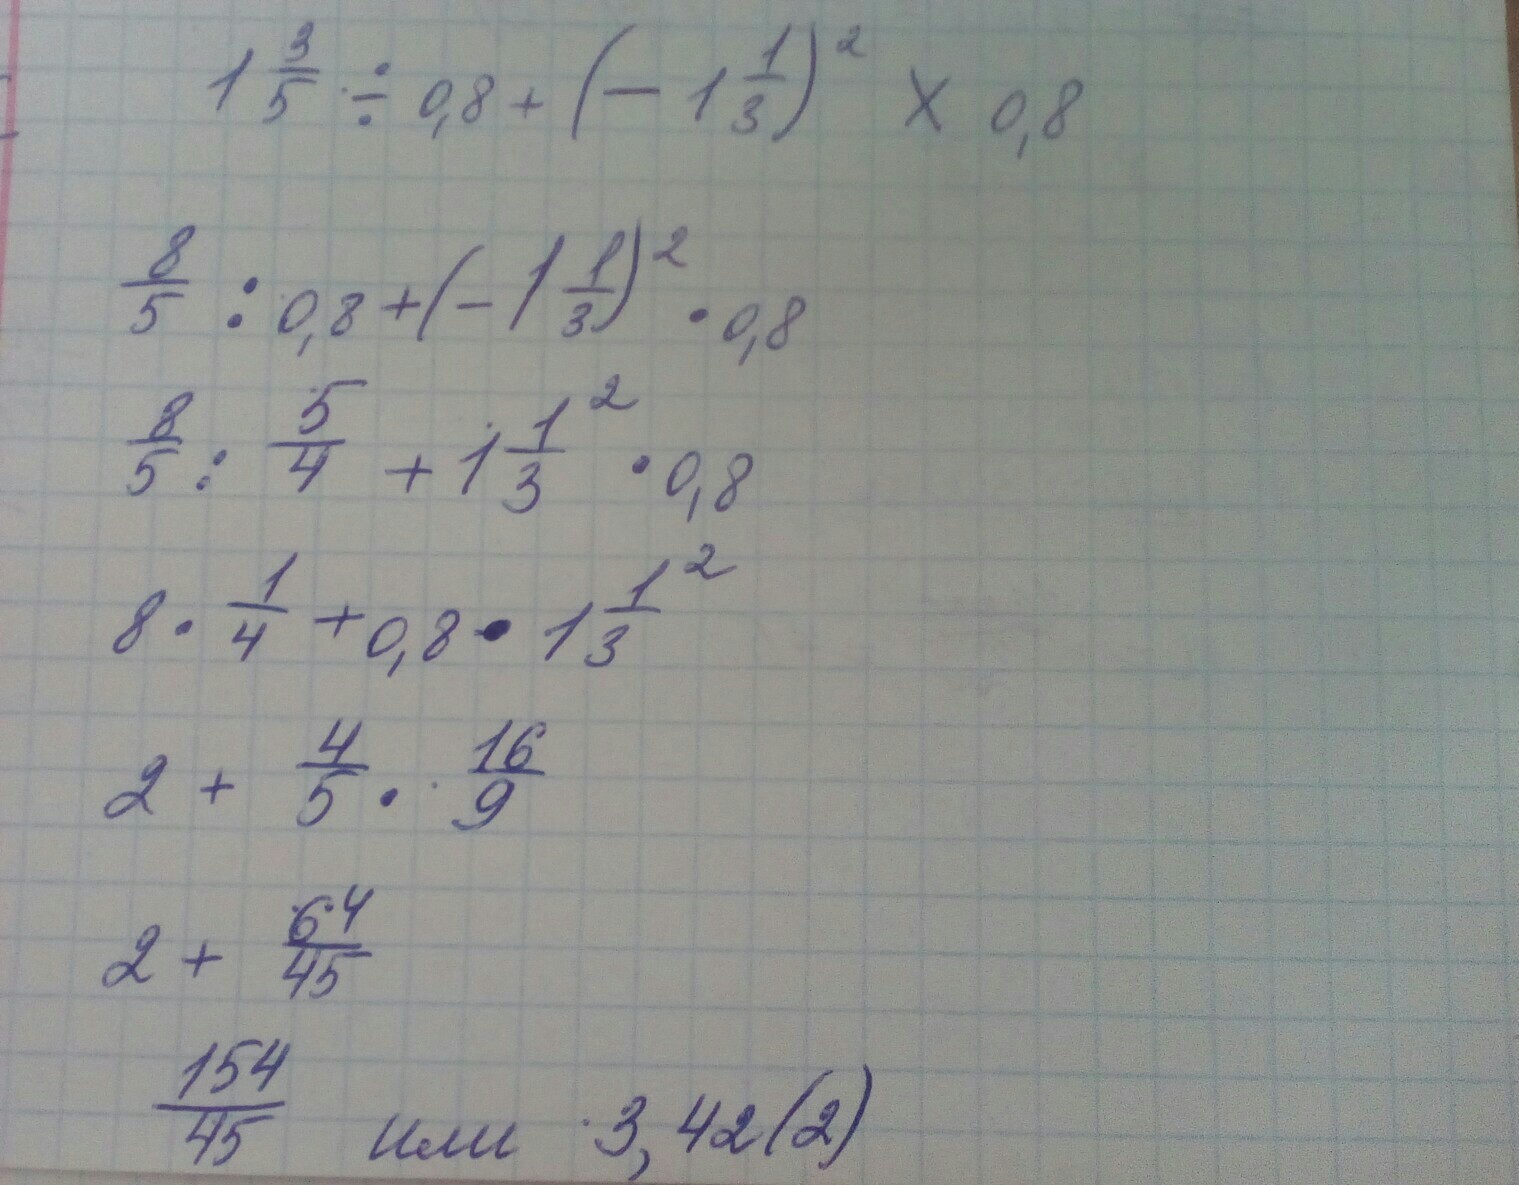 1 3/5 ÷ 0,8 + (- 1 1/3)² X 0,8
8/5 : 0,8 + (- 1 1/3)² · 0,8
8/5 : 5/4 + 1 1/3² · 0,8
8 · 1/4 + 0,8 · 1 1/3²
2 + 4/5 · 16/9
2 + 64/45
154/45 или 3,42(2)